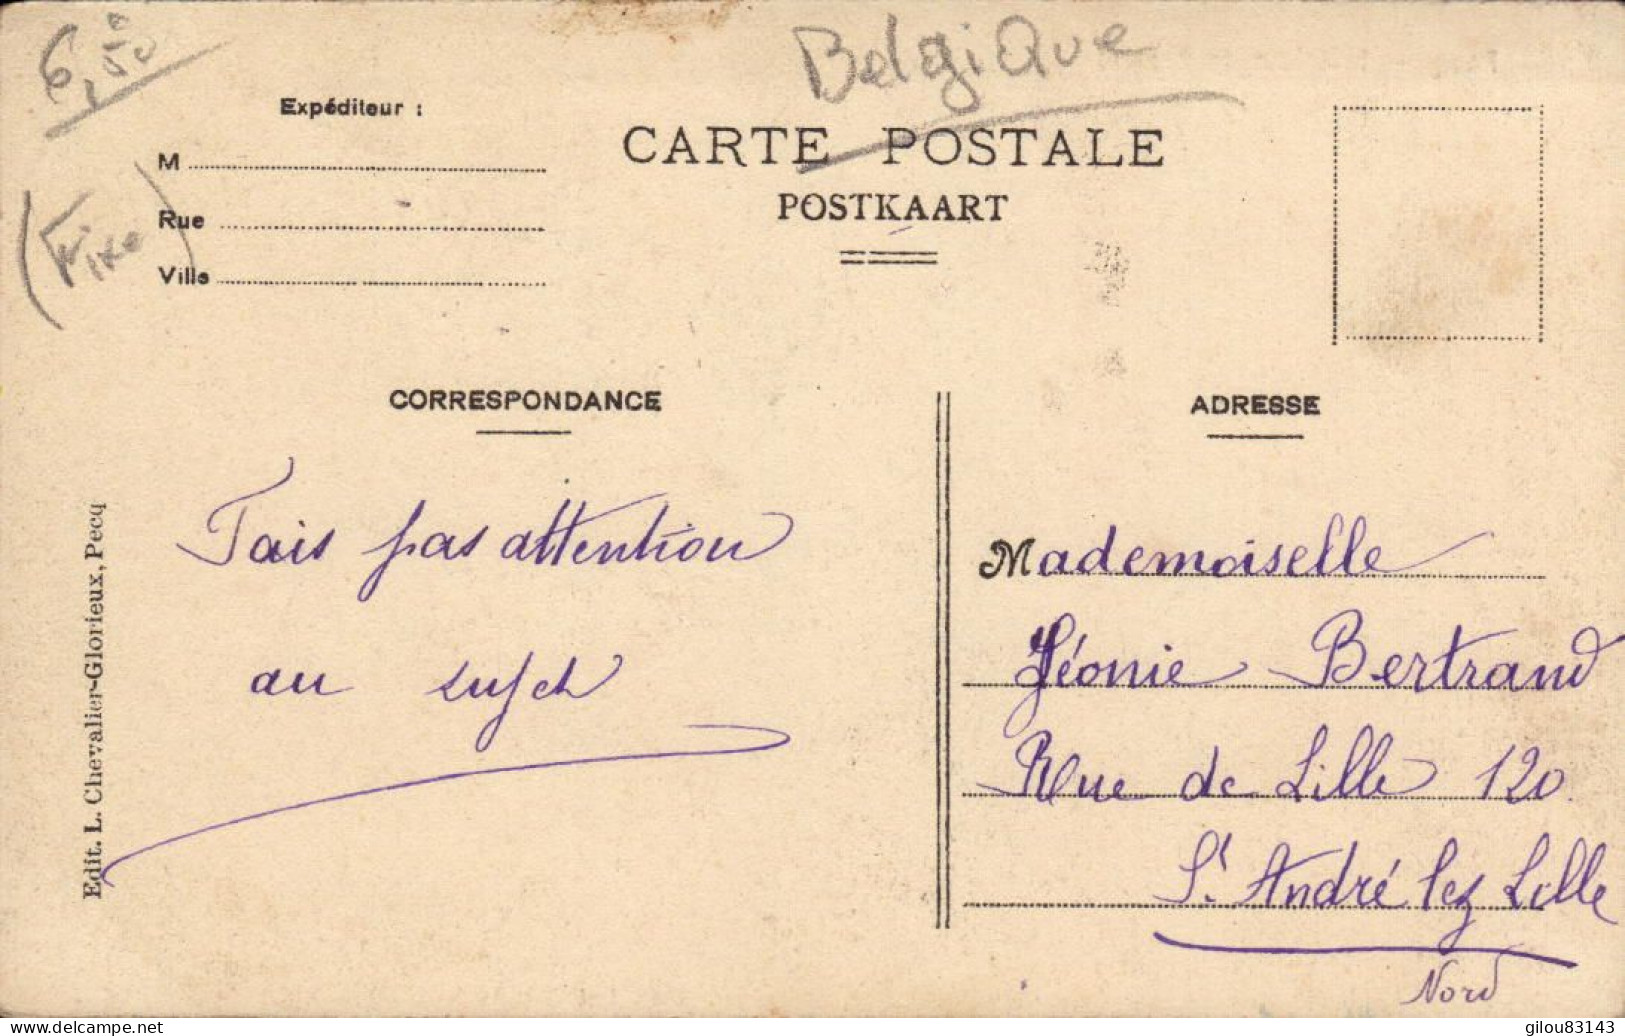 6,50 €
Belgique
(Fixe)
Expéditeur :
M
Rue
Ville
CARTE POSTALE
POSTKAART
CORRESPONDANCE
ADRESSE
Fais pas attention
au sujet
Mademoiselle
Léonie Bertrand
Rue de Lille 120
St André lez Lille
Nord
Edit. L. Chevalier-Glorieux, Pecq
www.delcampe.net
gilou83143